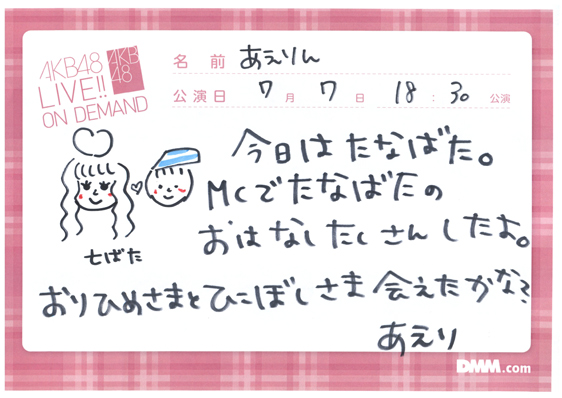 AKB48
LIVE!!
ON DEMAND
AKB
48
名前 あえりん
公演日 7月7日 18:30公演
今日はたなばた。
MCでたなばたの
おはなしたくさんしたよ。
七ばた
おりひめさまとひこぼしさま会えたかな?
あえり
DMM.com